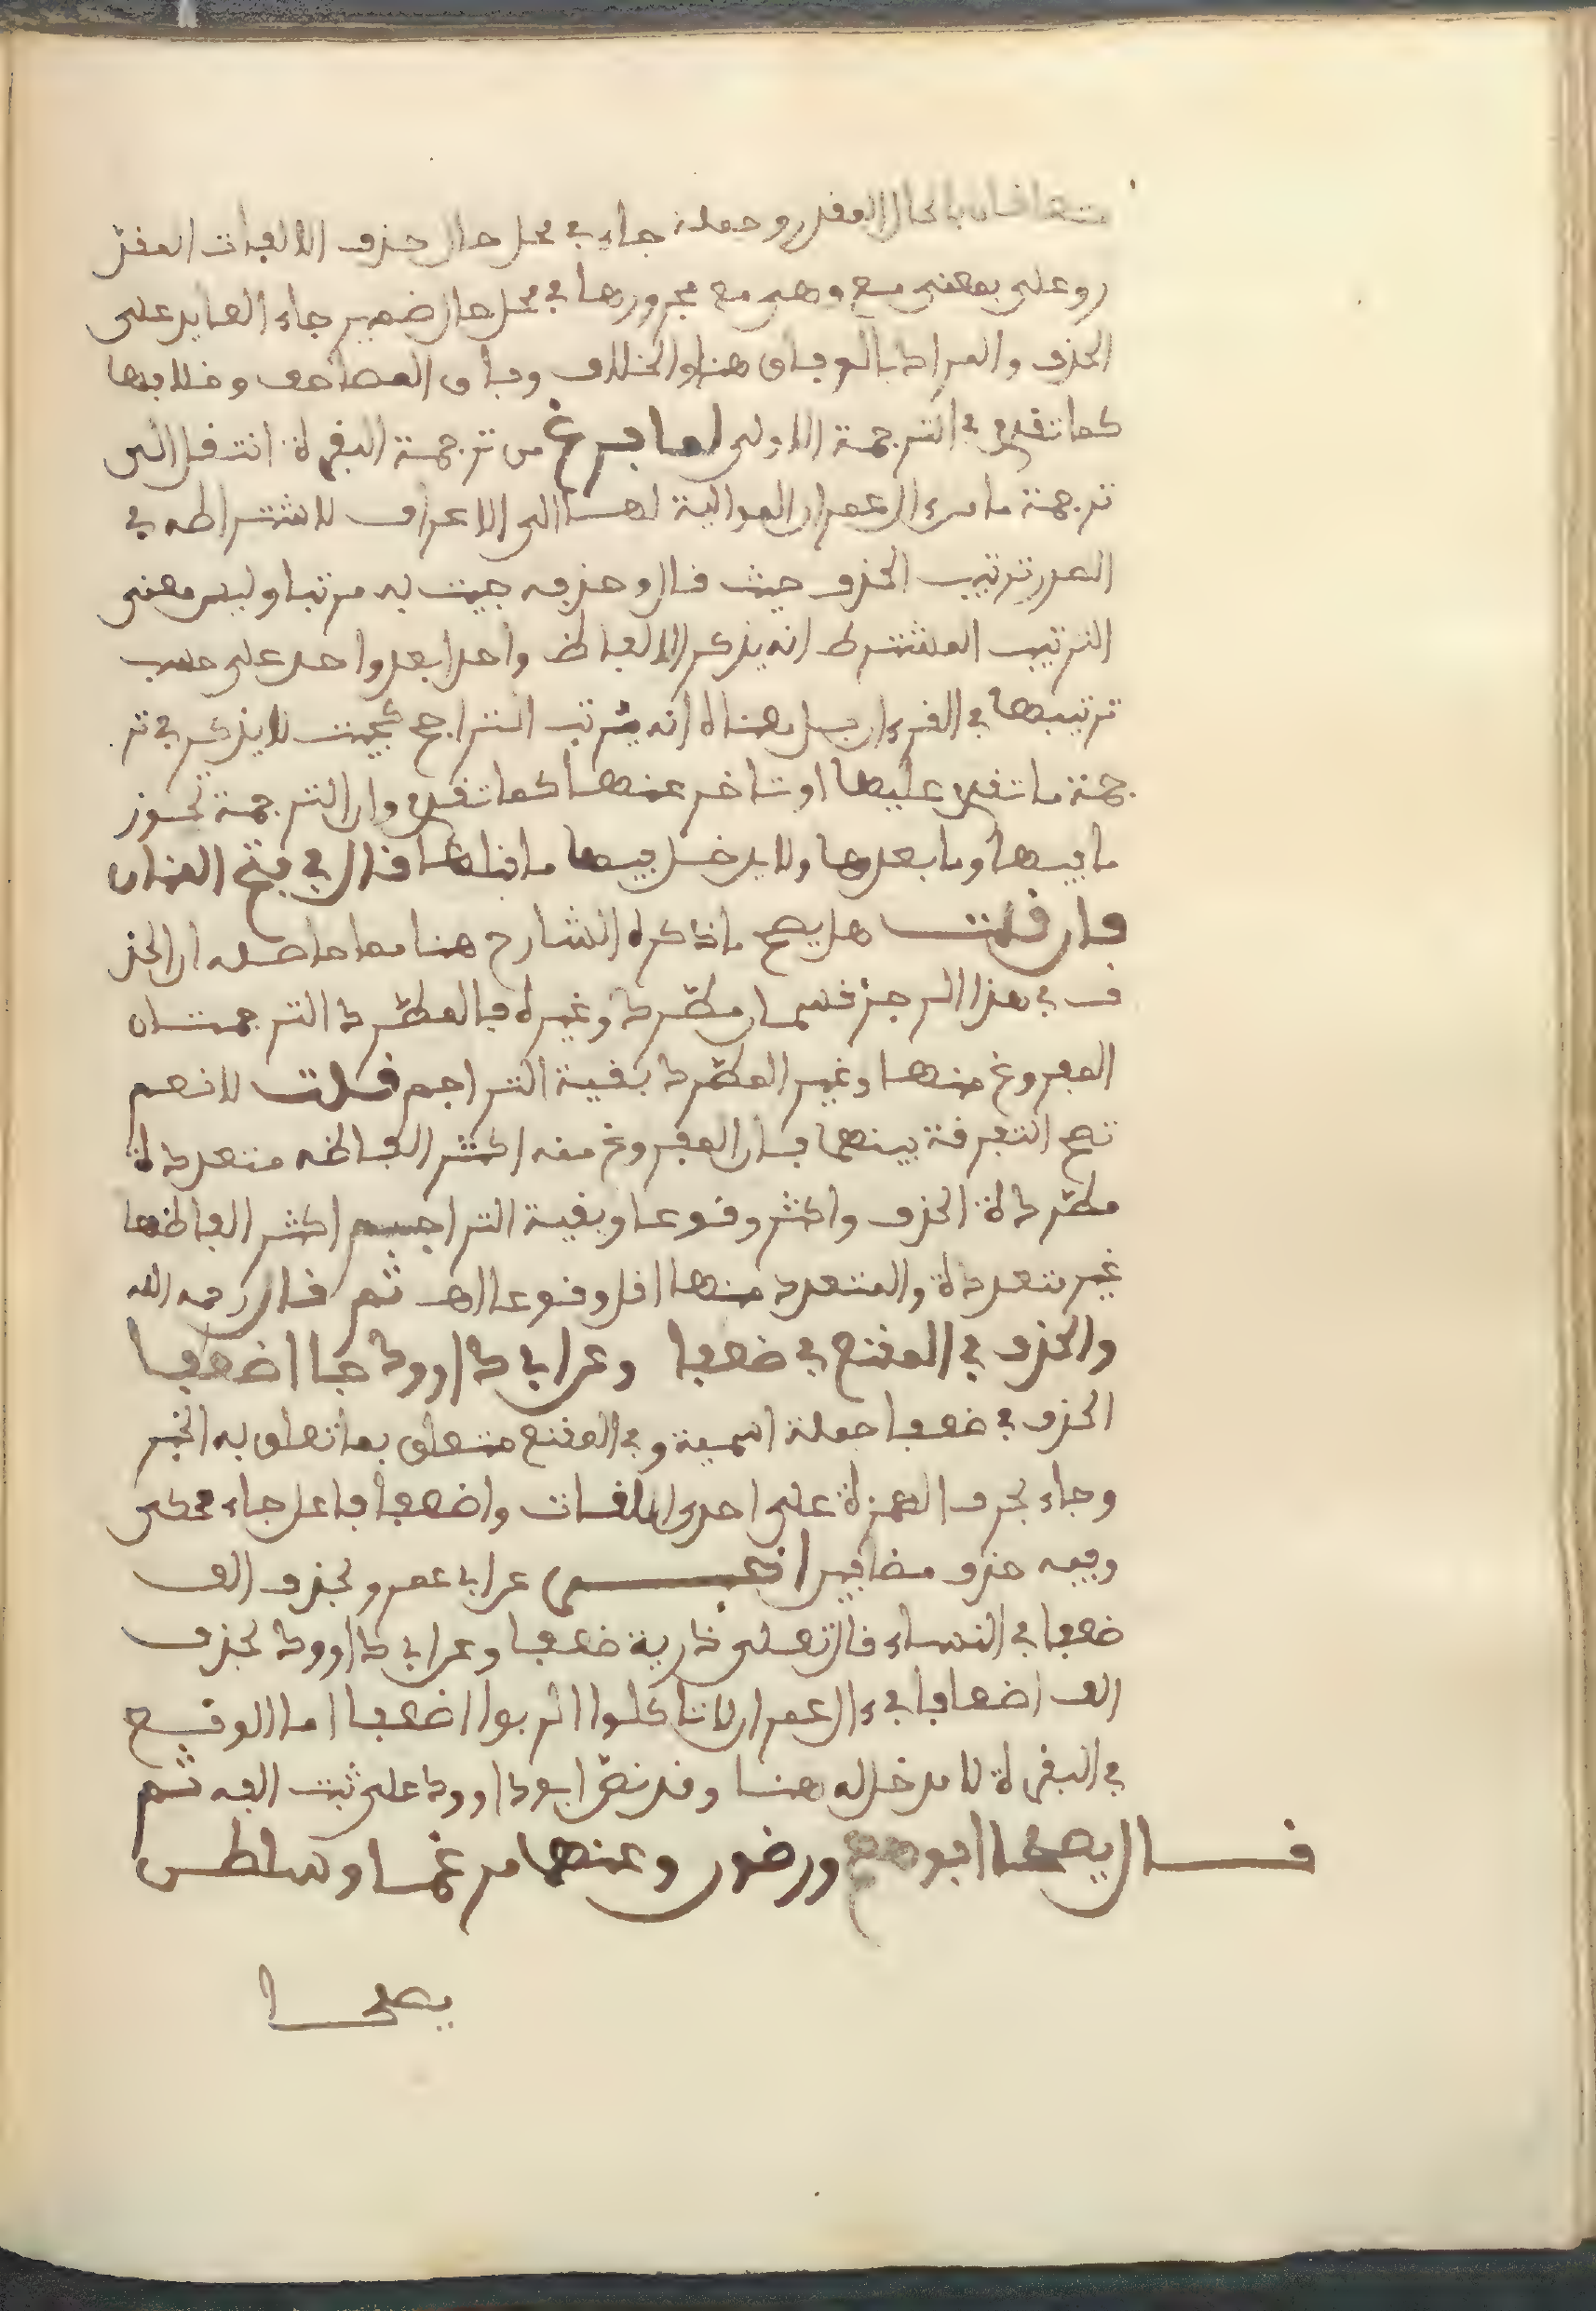 متعلقان بالحال المقدر وجملة جاء في محل حال حذف الالفات المقد
ر وعلى بمعنى مع وهي مع مجرورها في محل حال ضمير جاء العايد على
الحذف والمراد بالوفاق هنا والخلاف وفاق المصاحف وخلافها
كما تقدم في الترجمة الاولى لما فرغ من ترجمة البقرة انتقل الى
ترجمة ما من ءال عمران الموالية لها الى الاعراف لاشتراطه في
الصدر ترتيب الحذف حيث قال وحذفه جيت به مرتبا وليس معنى
الترتيب المشترط انه يذكر الالفاظ واحدا بعد واحد على حسب
ترتيبها في القرءان بل معناه انه يرتب التراجم بحيث لا يذكر في تر
جمة ما تقدم عليها او تاخر عنها كما تقدم وان الترجمة تحوز
ما فيها وما بعدها ولا يدخل فيها ما قبلها قال في فتح المنان
فان قلت هل يصح ما ذكره الشارح هنا مما حاصله ان الحذ
ف في هذا الرجز قسمان مطرد وغيره فالمطرد الترجمتان
المفروغ منهما وغير المطرد بقية التراجم قلت لا نعم
تصح التفرقة بينهما بان المفروغ منه اكثر الفاظه متعددة
مطردة الحذف واكثر وقوعا وبقية التراجم اكثر الفاظها
غير متعددة والمتعدد منها اقل وقوعا اهـ ثم قال رحمه الله
والحذف في المقنع في ضعفا وعن ابي داوود جا اضعفا
الحذف في ضعفا جملة اسمية وفي المقنع متعلق بما تعلق به الخبر
وجاء بحذف الهمزة على احدى اللغات واضعفا فاعل جاء محكي
وفيه حذف مضافين اخبر عن ابي عمرو بحذف الف
ضعفا في النساء قال تعلى ذرية ضعفا وعن ابي داوود بحذف
الف اضعافا في ءال عمران لا تاكلوا الربوا اضعفا اما الواقع
في البقرة لا مدخل له هنا وقد نص ابو داوود على ثبت الفه ثم
قال يصلحا افوههم ورضون وعنهما مرغما وسلطن
يصلحا